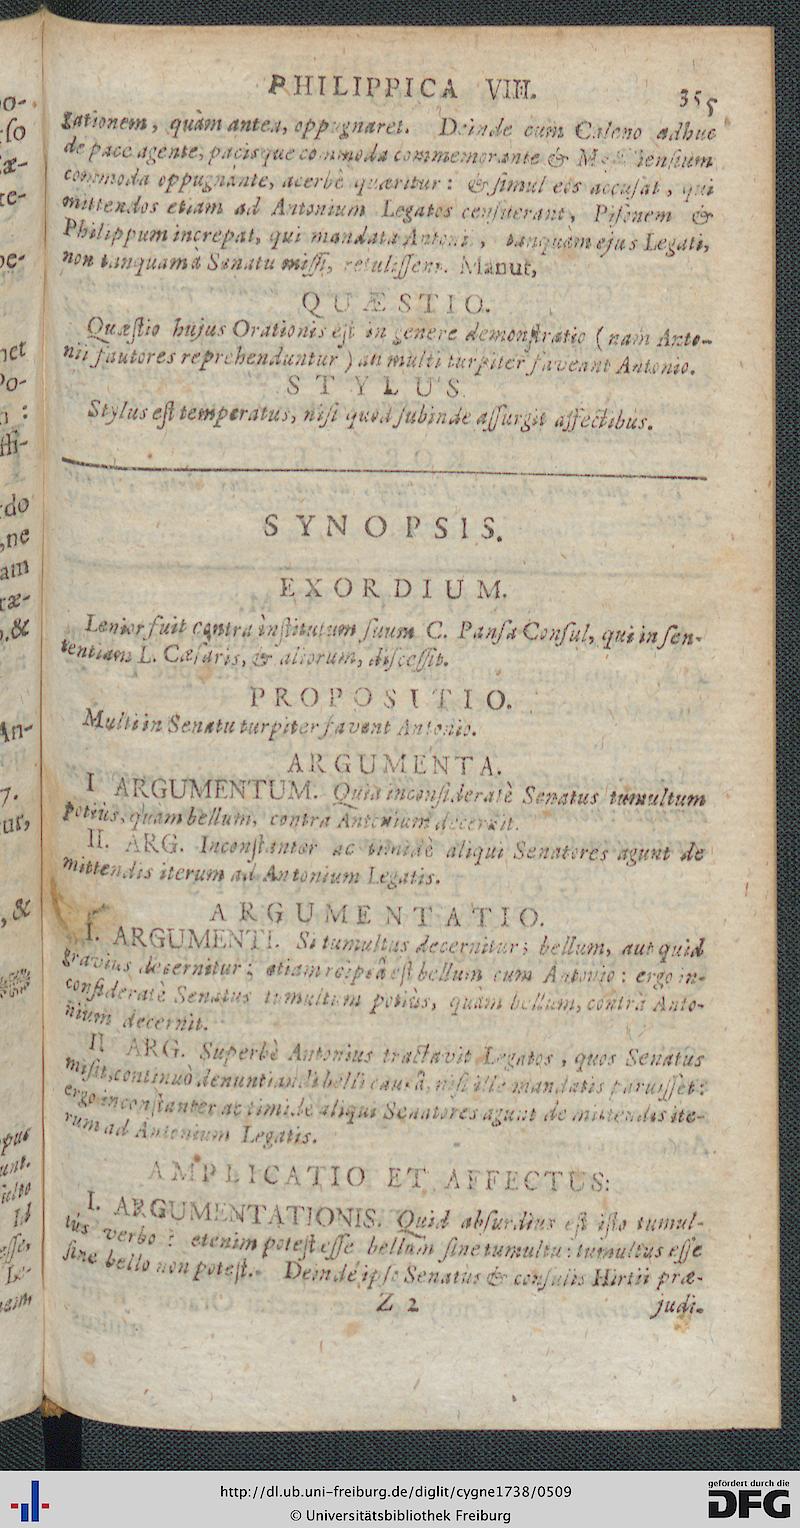 PHILIPPICA VIII. 355
gationem, quàm antea, oppugnaret. Deinde cum Caleno adhuc
de pace agente, pacisque commoda commemorante & M iensium
commoda oppugnante, acerbè quæritur: & simul eos accusat, qui
mittendos etiam ad Antonium Legatos censuerant, Pisonem &
Philippum increpat, qui mandata Antoni, tanquàm ejus Legati,
non tanquam à Senatu missi, retulissent. Manut,
QUÆSTIO.
Quæstio hujus Orationis est in genere demonstratio (nam Anto-
nii fautores reprehenduntur) an multi turpiter faveant Antonio.
STYLUS
Stylus est temperatus, nisi quòd subinde assurgit affectibus.
SYNOPSIS.
EXORDIUM.
Lenior fuit contra institutum suum C. Pansa Consul, qui in sen-
tentiam L. Cæsaris, & aliorum, discessit.
PROPOSITIO.
Multi in Senatu turpiter favent Antonio.
ARGUMENTA.
I ARGUMENTUM. Quia inconsideratè Senatus tumultum
potiùs, quam bellum, contra Antonium decernit.
II. ARG. Inconstanter ac timidè aliqui Senatores agunt de
mittendis iterum ad Antonium Legatis.
ARGUMENTATIO.
I. ARGUMENTI. Si tumultus decernitur; bellum, aut quid
gravius decernitur; etiam reipsâ est bellum cum Antonio: ergo in-
consideratè Senatus tumultum potiùs, quàm bellum, contrà Anto-
nium decernit.
II ARG. Superbè Antonius tractavit Legatos, quos Senatus
misit, continuò denuntiandi belli causâ, nisi ille mandatis paruisset:
ergo inconstanter ac timidè aliqui Senatores agunt de mittendis ite-
rum ad Antonium Legatis.
AMPLICATIO ET AFFECTUS:
I. ARGUMENTATIONIS. Quid absurdius est isto tumul-
tùs verbo? etenim potest esse bellum sine tumultu: tumultus esse
sine bello non potest. Deinde ipse Senatus & consulis Hirtii præ-
Z 2 judi-
http://dl.ub.uni-freiburg.de/diglit/cygne1738/0509
© Universitätsbibliothek Freiburg
gefördert durch die
DFG